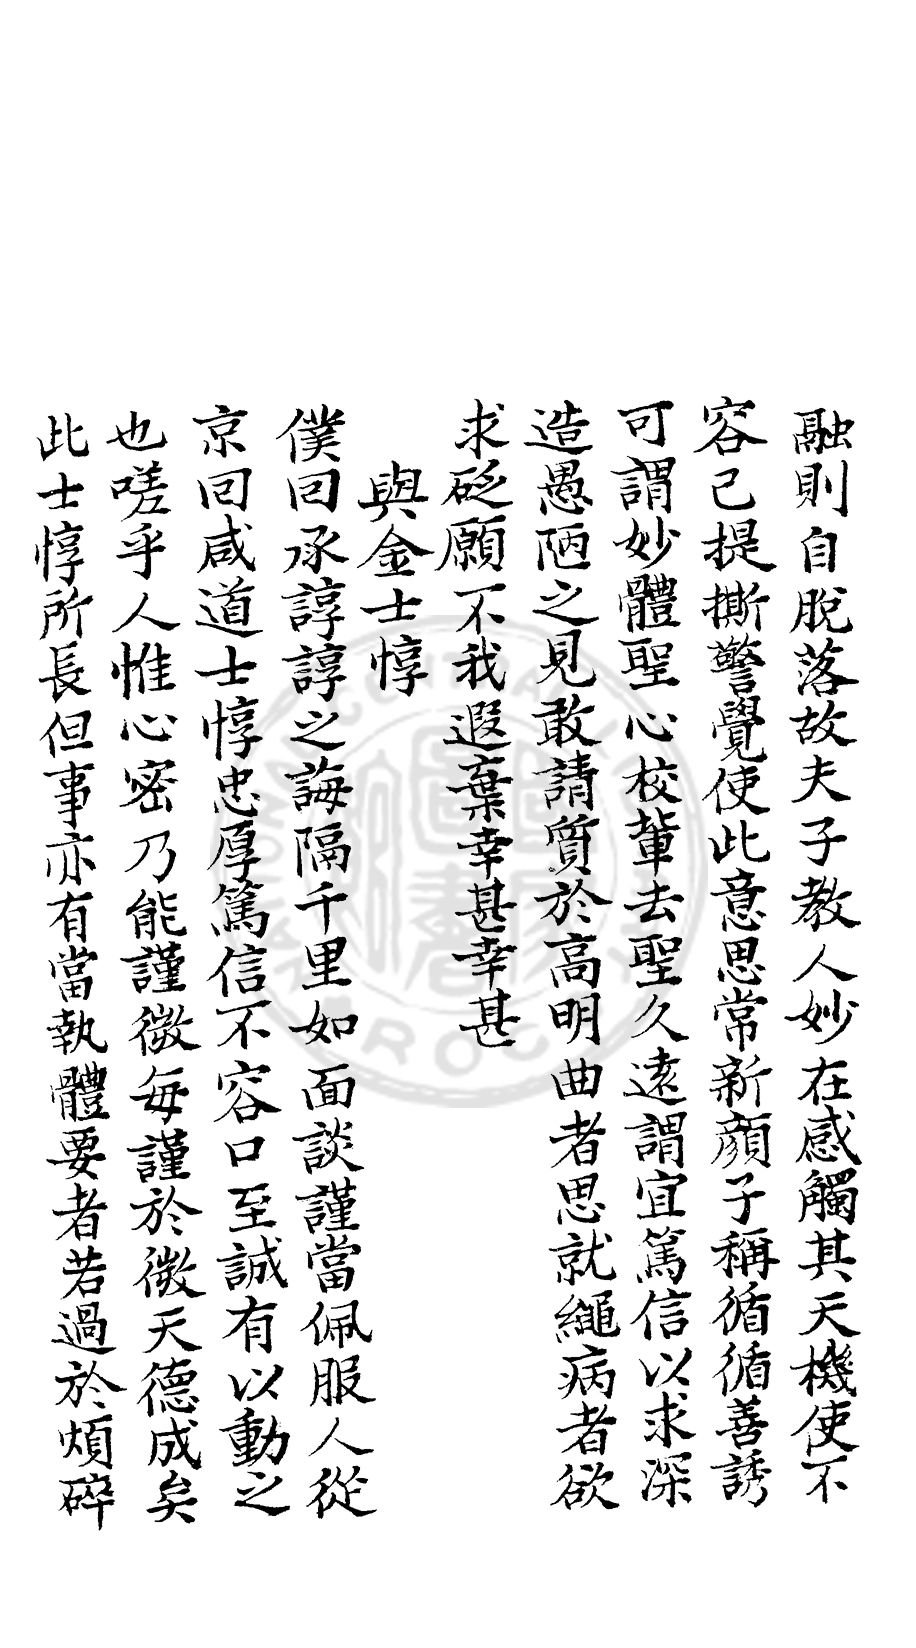 融則自脫落故夫子教人妙在感觸其天機使不
容已提撕警覺使此意思常新顏子稱循循善誘
可謂妙體聖心校輩去聖久遠謂宜篤信以求深
造愚陋之見敢請質於高明曲者思就繩病者欲
求砭願不我遐棄幸甚幸甚
與金士惇
僕回承諄諄之誨隔千里如面談謹當佩服人從
京回咸道士惇忠厚篤信不容口至誠有以動之
也嗟乎人惟心密乃能謹微每謹於微天德成矣
此士惇所長但事亦有當執體要者若過於煩碎